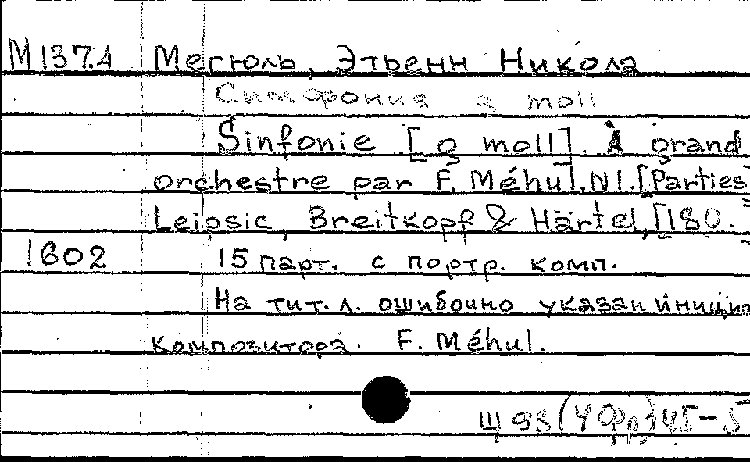 М137.4 Мегюль, Этьенн Никола
Симфония g moll
Sinfonie [g moll]. À grand
orchestre par F. Méhul. N1. [Parties]
Leipsic, Breitkopf & Härtel, [180.
1602 15 парт. с портр. комп.
На тит. л. ошибочно указан иници
композитора. F. Méhul.
Щ 93